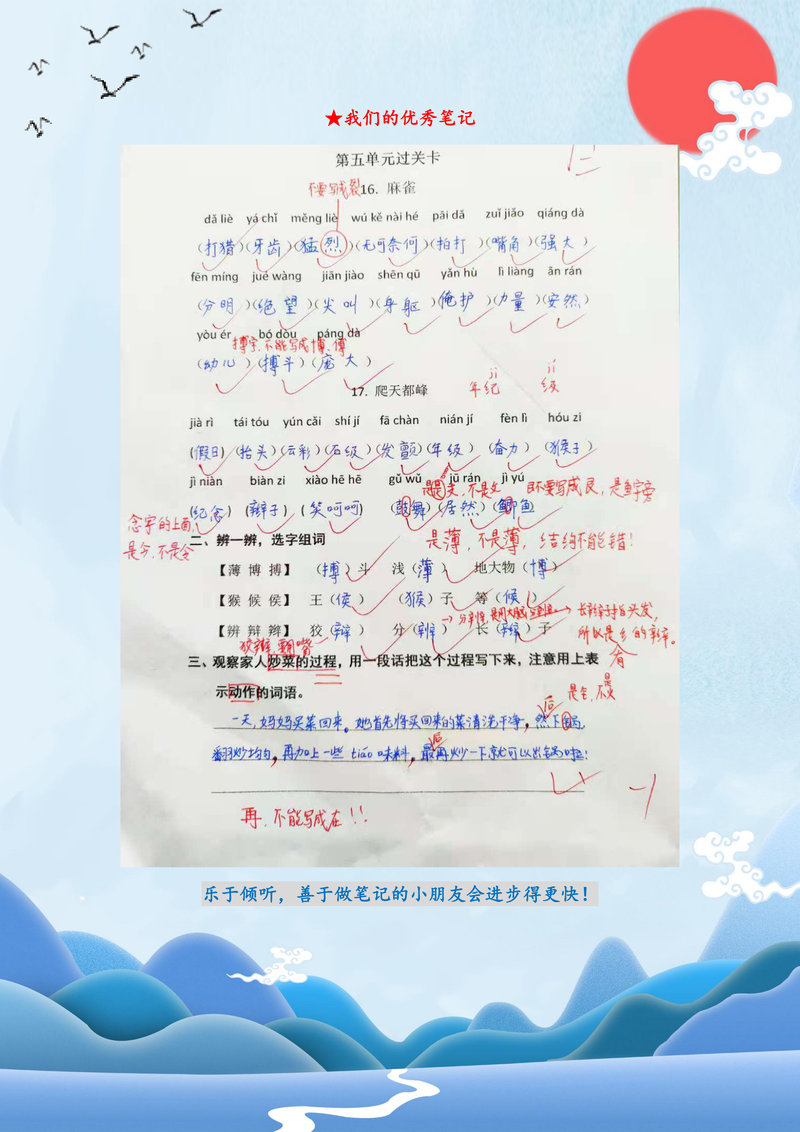 ★我们的优秀笔记
第五单元过关卡
不要写成裂
16. 麻雀
dǎ liè yá chǐ měng liè wú kě nài hé pāi dǎ zuǐ jiǎo qiáng dà
(打猎)(牙齿)(猛烈)(无可奈何)(拍打)(嘴角)(强大)
fēn míng jué wàng jiān jiào shēn qū yǎn hù lì liàng ān rán
(分明)(绝望)(尖叫)(身躯)(俺护)(力量)(安然)
yòu ér bó dòu páng dà
搏字,不能写成博、傅
(幼儿)(搏斗)(庞大)
jǐ jí
年纪 级
17. 爬天都峰
jià rì tái tóu yún cǎi shí jí fā chàn nián jí fèn lì hóu zi
(假日)(抬头)(云彩)(石级)(发颤)(年级)(奋力)(猴子)
jì niàn biàn zi xiào hē hē gǔ wǔ jū rán jì yú
不是攵 即不要写成艮,是鱼字旁
(纪念)(辫子)(笑呵呵)(鼓舞)(居然)(鲫鱼
念字的上面,
是今,不是令
二、辨一辨,选字组词
是薄,不是薄,结构不能错!
【薄 博 搏】 (搏)斗 浅(薄) 地大物(博)
【猴 候 侯】 王(侯) (猴)子 等(候)
长辫子指头发,
【辨 辩 辫】 狡(辩) 分(辨) 长(辫)子
所以是纟的辫。
狡辩,
三、观察家人炒菜的过程,用一段话把这个过程写下来,注意用上表
示动作的词语。
一天,妈妈买菜回来。她首先将买回来的菜清洗干净,然后下锅,
翻炒均匀,再加上一些tiáo味料,最后再炒一下就可以出锅啦!
再,不能写成在!!
乐于倾听,善于做笔记的小朋友会进步得更快!